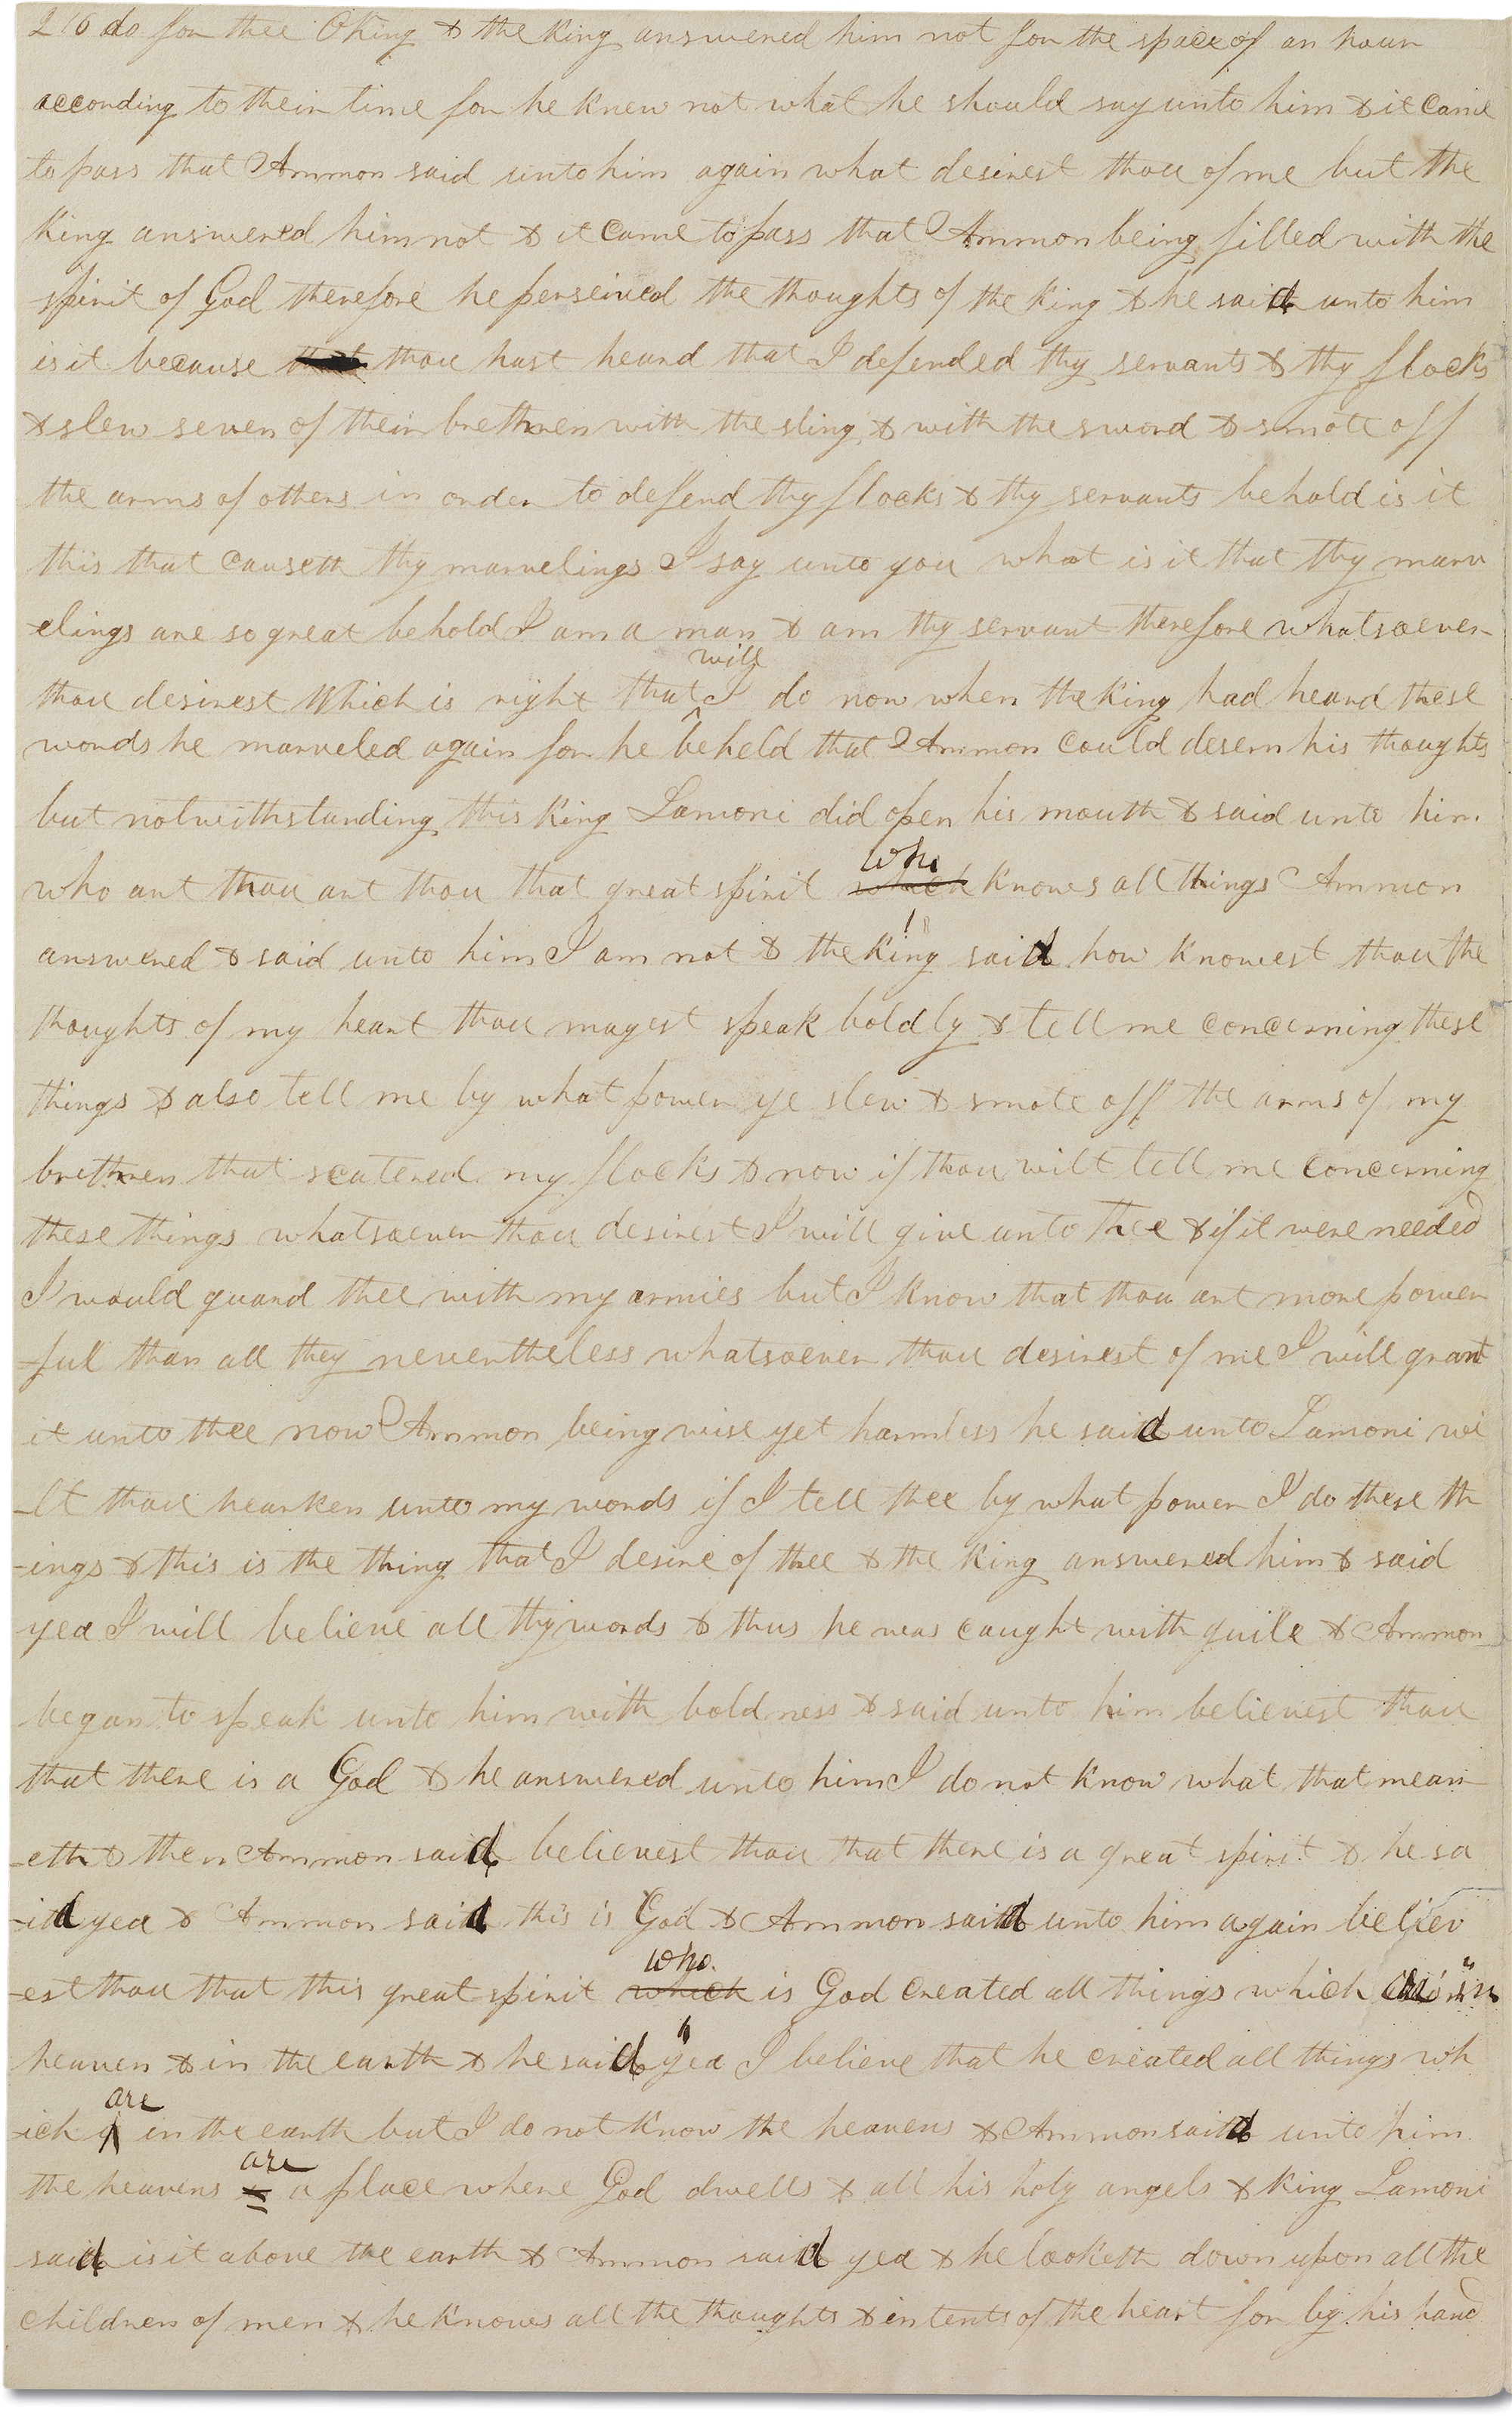 to do for thee O king & the king answered him not for the space of an hour
according to their time for he knew not what he should say unto him & it came
to pass that Ammon said unto him again what desirest thou of me but the
king answered him not & it came to pass that Ammon being filled with the
spirit of God therefore he perseived the thoughts of the king & he said unto him
is it because that thou hast heard that I defended thy servants & thy flocks
& slew seven of their brethren with the sling & with the sword & smote off
the arms of others in order to deffend thy flocks & thy servants behold is it
this that causeth thy marvelings I say unto you what is it that thy marv
elings are so great behold I am a man & am thy servant therefore whatsoever
will
thou desirest Which is right that I ^ do now when the king had heard these
words he marveled again for he beheld that Ammon could desern his thoughts
but notwithstanding this king Lamoni did open his mouth & said unto him
who
who art thou art thou that great spirit which knows all things Ammon
answered & said unto him I am not & the king said how knowest thou the
thoughts of my heart thou mayest speak boldly & tell me concerning these
things & also tell me by what power ye slew & smote off the arms of my
brethren that scatered my flocks & now if thou wilt tell me concerning
these things whatsoever thou desirest I will give unto thee & if it were needed
I would guard thee with my armies but I know that thou art more power
-ful than all they nevertheless whatsoever thou desirest of me I will grant
it unto thee now Ammon being wise yet harmless he said unto Lamoni wi
-lt thou hearken unto my words if I tell thee by what power I do these th
-ings & this is the thing that I desire of thee & the king answered him & said
yea I will believe all thy words & thus he was caught with guile & Ammon
began to speak unto him with boldness & said unto him believest thou
that there is a God & he answered unto him I do not know what that mean
-eth & then Ammon said believest thou that there is a great spirit & he sa
-id yea & Ammon said this is God & Ammon said unto him again believ
who
-est thou that this great spirit which is God created all things which in
heaven & in the earth & he said yea I believe that he created all things wh
are
-ich in the earth but I do not know the heavens & Ammon said unto him
are
the heavens is a place where God dwells & all his holy angels & king Lamoni
said is it above the earth & Ammon said yea & he looketh down upon all the
children of men & he knows all the thoughts & intents of the heart for by his hand